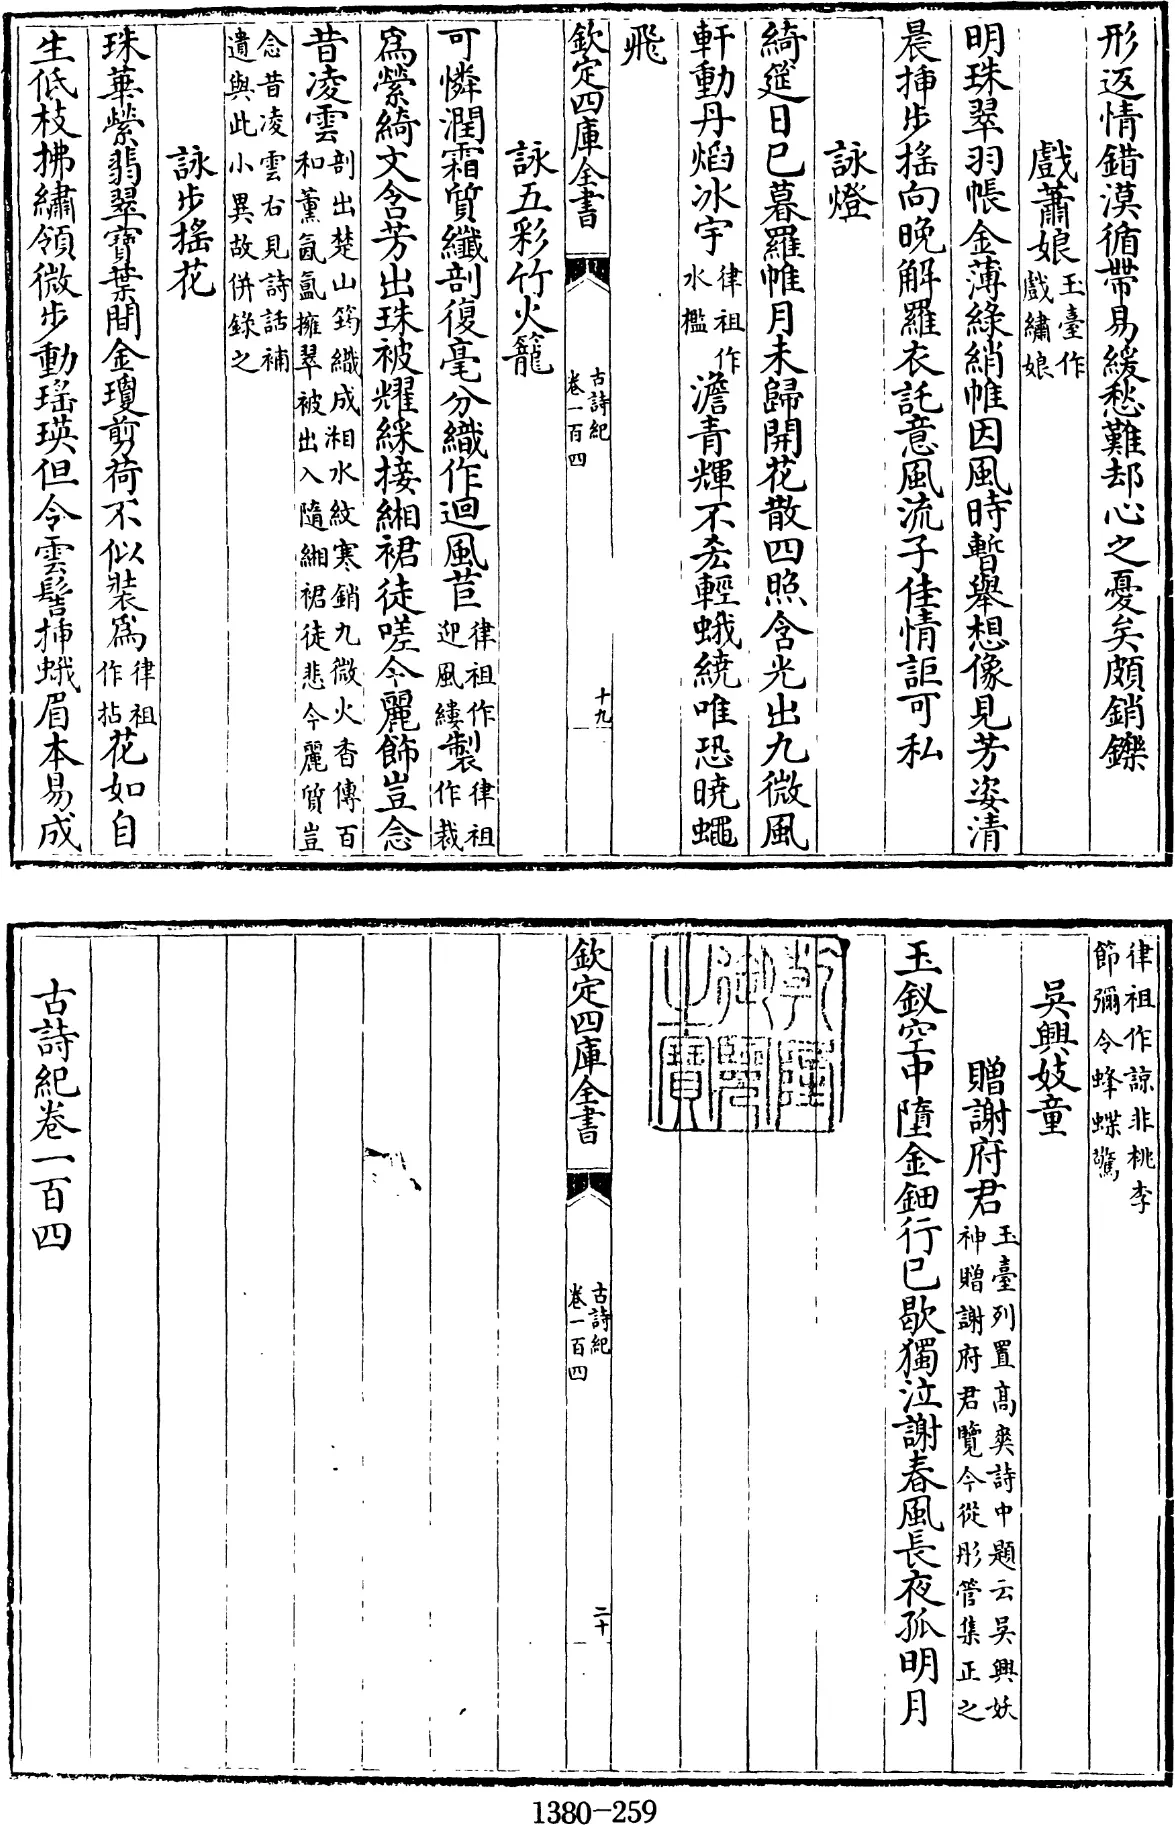 形返情錯漠循帶易緩愁難却心之憂矣頗銷鑠
戲蕭娘玉臺作戲繡娘
明珠翠羽帳金薄綠綃帷因風時暫舉想像見芳姿清
晨插步搖向晚解羅衣託意風流子佳情詎可私
詠燈
綺筵日已暮羅帷月未歸開花散四照含光出九微風
軒動丹焰冰宇律祖作水檻澹青輝不吝輕蛾繞唯恐曉蠅
飛
欽定四庫全書
古詩紀
卷一百四
十九
詠五彩竹火籠
可憐潤霜質纖剖復毫分織作迴風苣律祖作迎風縷製律祖作裁
為縈綺文含芳出珠被耀綵接緗裙徒嗟今麗飾豈念
昔凌雲剖出楚山筠織成湘水紋寒銷九微火香傳百和薰氤氳擁翠被出入隨緗裙徒悲今麗質豈
念昔凌雲右見詩話補遺與此小異故併錄之
詠步搖花
珠華縈翡翠寶葉間金瓊剪荷不似裝為律祖作拈花如自
生低枝拂繡領微步動瑤瑛但令雲髻插蛾眉本易成
律祖作諒非桃李節彌令蜂蝶驚
吳興妓童
贈謝府君玉臺列置高爽詩中題云吳興妖神贈謝府君覽今從彤管集正之
玉釵空中墮金鈿行已歇獨泣謝春風長夜孤明月
乾隆御覽之寶
欽定四庫全書
古詩紀
卷一百四
二十
古詩紀卷一百四
1380-259